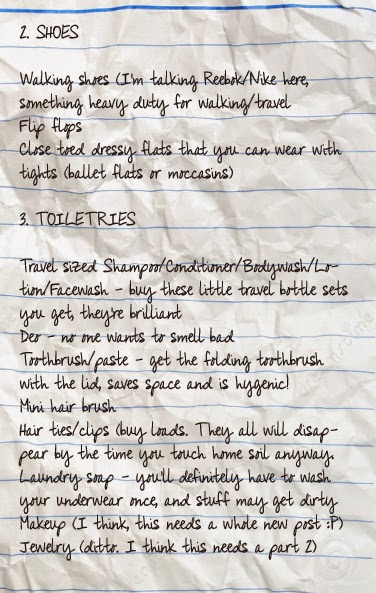 2. SHOES
Walking shoes (I'm talking Reebok/Nike here,
something heavy duty for walking/travel
Flip flops
Close toed dressy flats that you can wear with
tights (ballet flats or moccasins)
3. TOILETRIES
Travel sized Shampoo/Conditioner/Bodywash/Lo-
tion/Facewash - buy these little travel bottle sets
you get, they're brilliant
Deo - no one wants to smell bad
Toothbrush/paste - get the folding toothbrush
with the lid, saves space and is hygenic!
Mini hair brush
Hair ties/clips (buy loads. They all will disap-
pear by the time you touch home soil anyway.
Laundry soap - you'll definitely have to wash
your underwear once, and stuff may get dirty
Makeup (I think, this needs a whole new post :P)
Jewelry (ditto. I think this needs a part 2)